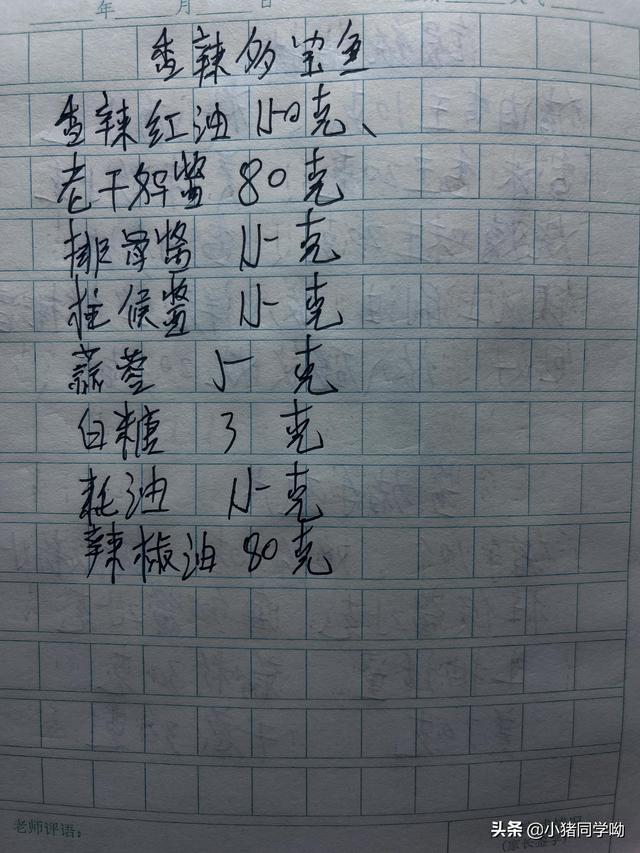 年 月 日
香辣多宝鱼
香辣红油 150克、
老干妈酱 80克
排骨酱 15克
柱候酱 15克
蒜蓉 5克
白糖 3克
耗油 15克
辣椒油 80克
老师评语:
头条 @小猪同学呦